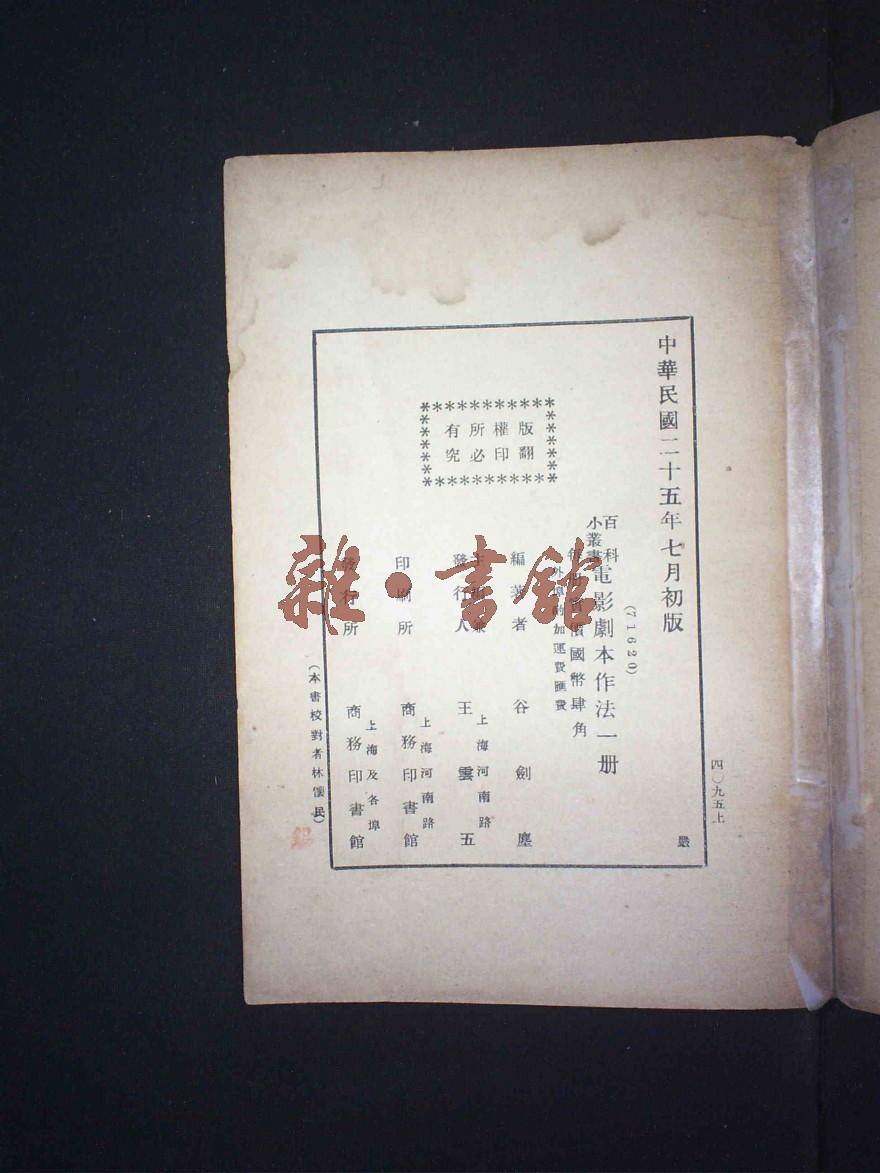 四〇九五上
中華民國二十五年七月初版
嚴
(71620)
百科
小叢書
電影劇本作法一册
每册實價國幣肆角
外埠酌加運費匯費
版權所有
翻印必究
編著者 谷劍塵
發行人 王雲五
上海河南路
印刷所 商務印書館
上海河南路
發行所 商務印書館
上海及各埠
(本書校對者林 民)
雜·書館